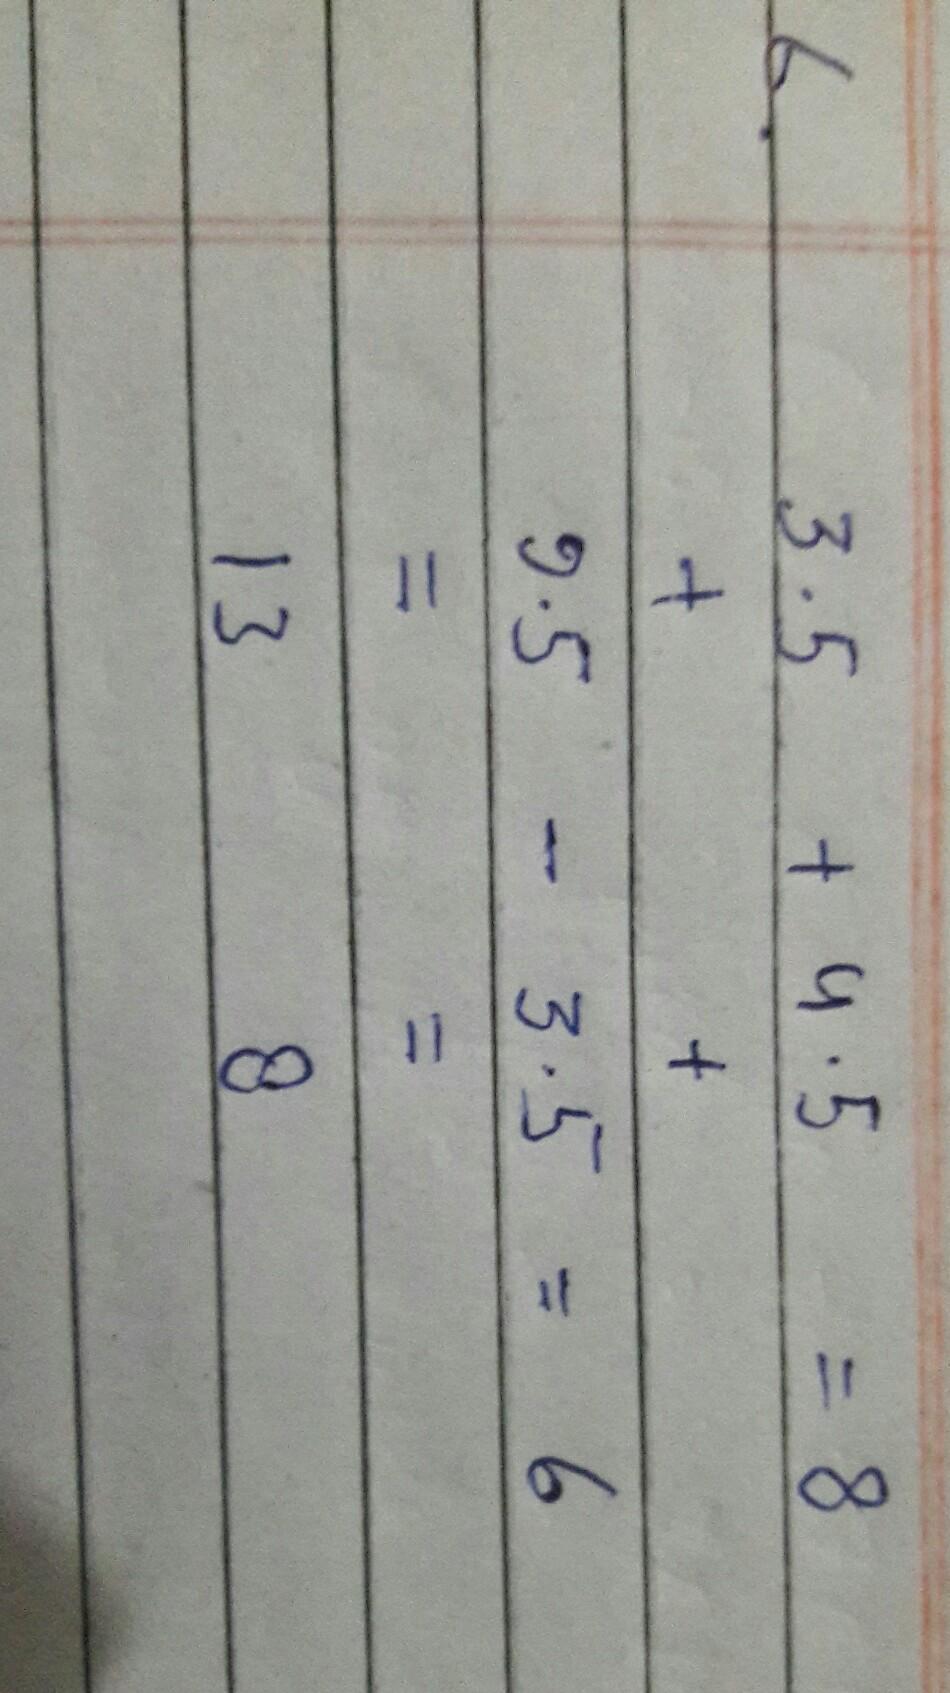 6. 3.5 + 4.5 = 8
+ +
9.5 - 3.5 = 6
= =
13 8